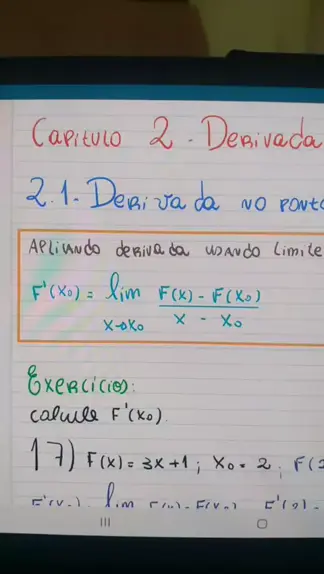 Capitulo 2 - Derivada
2.1. Derivada no ponto
Aplicando derivada usando limite
F'(x₀) = lim F(x) - F(x₀)
x→x₀ x - x₀
Exercícios:
calcule F'(x₀)
17) F(x) = 3x + 1 ; x₀ = 2 ; F(2
F'(x₀) lim F(x) - F(x₀) F'(2) -